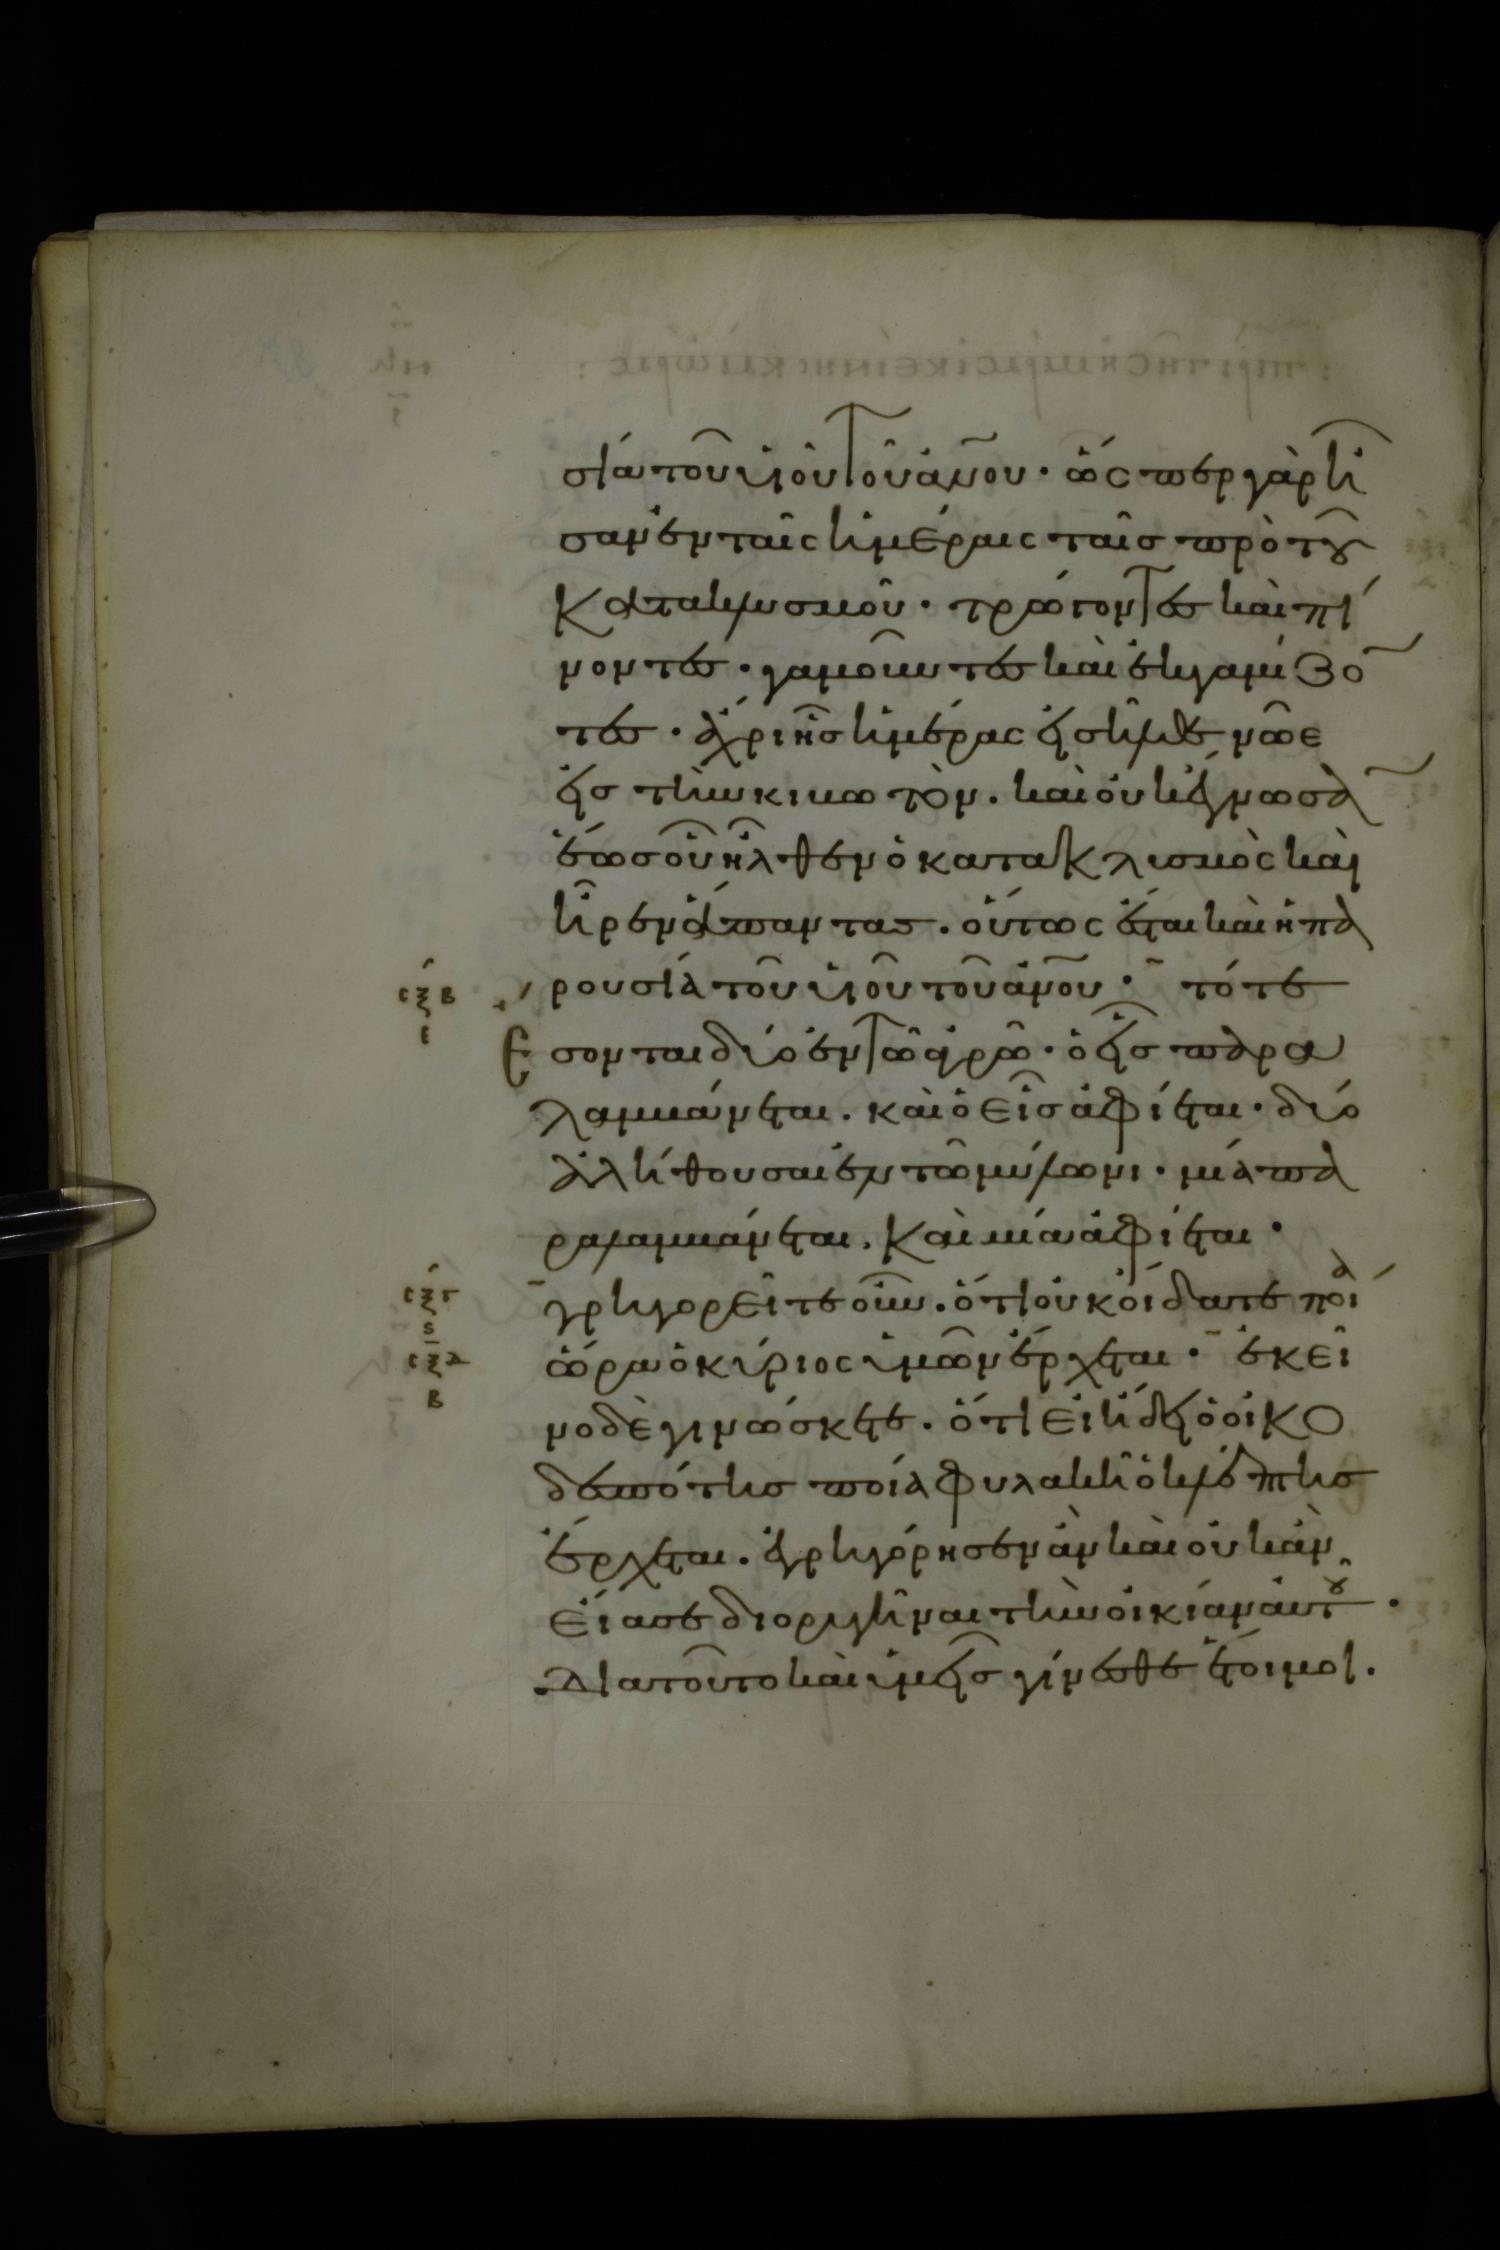 σία τοῦ υἱοῦ τοῦ ἀνου· ὥσπερ γὰρ ἦ
σαν ἐν ταῖς ἡμέραις ταῖς πρὸ τοῦ
κατακλυσμοῦ· τρώγοντες καὶ πί
νοντες· γαμοῦντες καὶ ἐκγαμίζο
τες· ἄχρι ἧς ἡμέρας εἰσῆλθε νῶε
εἰς τὴν κιβωτὸν· καὶ οὐκ ἔγνωσα
ἕως οὗ ἦλθεν ὁ κατακλισμὸς καὶ
ἦρεν ἅπαντας· οὕτως ἔσται καὶ ἡ πα
ρουσία τοῦ υἱοῦ τοῦ ἀνου· τότε
σξβ
ε
ἔσονται δύο ἐν τῶ ἀγρῶ· ὁ εἷς παρα
λαμβάνεται· καὶ ὁ εἷς ἀφίεται· δύο
ἀλήθουσαι ἐν τῶ μύλωνι· μία πα
ραλαμβάνεται· καὶ μία ἀφίεται·
γρηγορεῖτε οὖν· ὅτι οὐκ οἴδατε ποία
σξγ
ς
ὥρα ὁ κύριος ὑμῶν ἔρχεται· ἐκεῖ
σξδ
β
νο δὲ γινώσκετε· ὅτι εἰ ἤδει ὁ οἰκο
δεσπότης ποία φυλακῆ ὁ κλέπτης
ἔρχεται· ἐγρηγόρησεν ἂν καὶ οὐκ ἂν
εἴασε διορυγῆναι τὴν οἰκίαν αὐτοῦ·
Διατοῦτο καὶ ὑμεῖς γίνεσθε ἕτοιμοι·